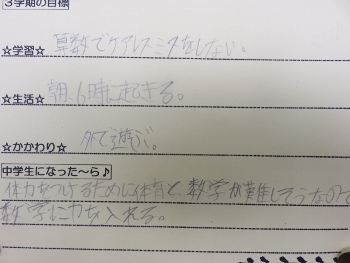 3学期の目標
☆学習☆ 算数でケアレスミスをしない。
☆生活☆ 朝、6時に起きる。
☆かかわり☆ 外で遊ぶ。
中学生になった〜ら♪
体力をつけるために体育と、数学が難しそうなので
数学に力を入れる。